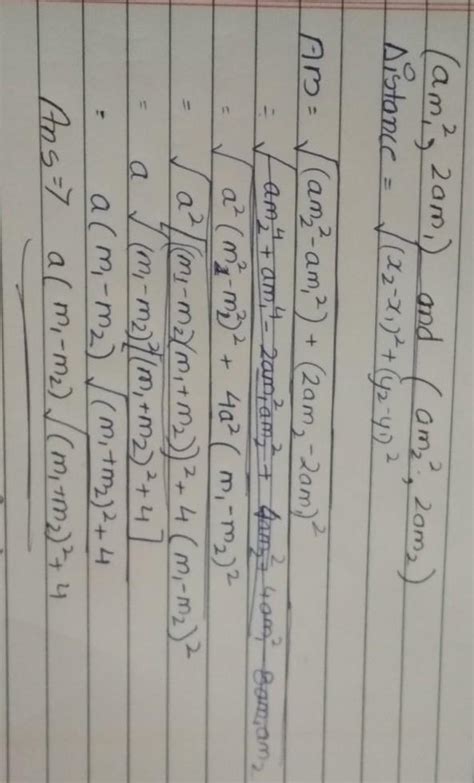 (am₁², 2am₁) and (am₂², 2am₂)
Distance = √(x₂-x₁)²+(y₂-y₁)²
Ans = √(am₂²-am₁²) + (2am₂-2am₁)²
= √am₂⁴ + am₁⁴ - 2am₁²am₂² + 4am₂² + 4am₁² 8am₁am₂
= √a²(m₁²-m₂²)² + 4a²(m₁-m₂)²
= √a²[(m₁-m₂)(m₁+m₂))² + 4(m₁-m₂)²
= a √(m₁-m₂)²[(m₁+m₂)²+4]
= a(m₁-m₂)√(m₁+m₂)²+4
Ans => a(m₁-m₂)√(m₁+m₂)²+4